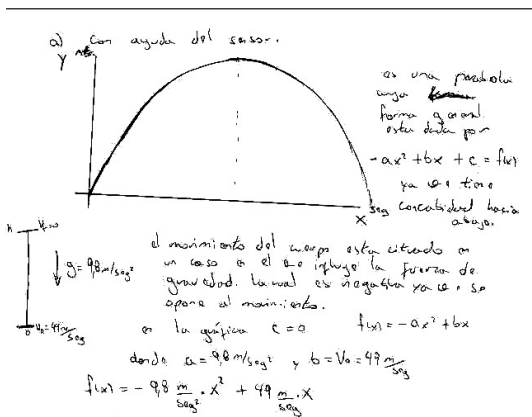 a) Con ayuda del sensor.
Y
es una parabola
cuya
forma general
esta dada por
-ax² + bx + c = f(x)
ya q e tiene
X seg concabidad hacia
abajo.
h
g = 9,8 m/seg²
0 V₀ = 49 m/seg
el movimiento del cuerpo esta cituado en
un caso en el qe influye la fuerza de
gravedad. la cual es negativa ya q e se
opone al movimiento.
en la gráfica c = 0 f(x) = -ax² + bx
donde a = 9,8 m/seg² y b = V₀ = 49 m/seg
f(x) = - 9,8 m/seg² · x² + 49 m/seg · x